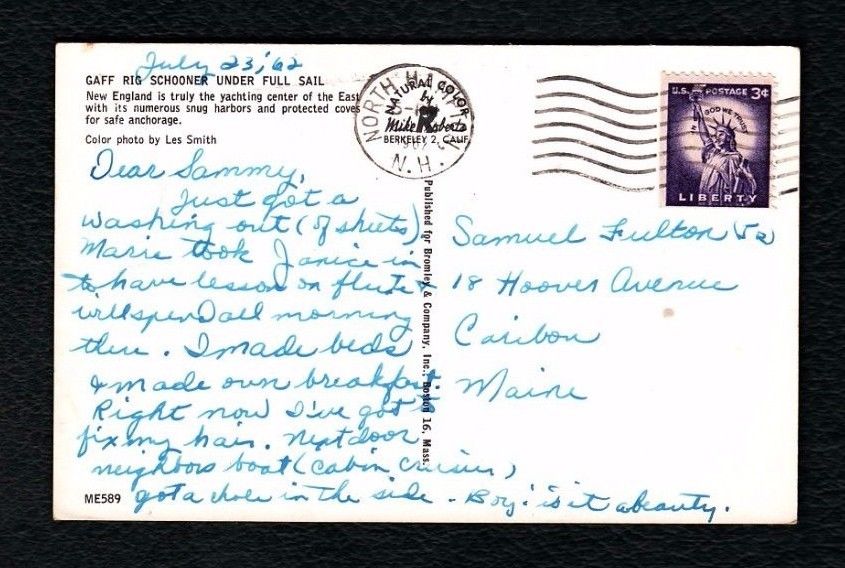 July 23, '62
GAFF RIG SCHOONER UNDER FULL SAIL
New England is truly the yachting center of the East
with its numerous snug harbors and protected coves
for safe anchorage.
Color photo by Les Smith
Dear Sammy,
Just got a
washing out (of sheets)
Marie took Janice in
to have lesson on flute &
will spend all morning
there. I made beds
& made own breakfast.
Right now I've got to
fix my hair. Next door
neighbors boat (cabin cruiser)
got a hole in the side. Boy! is it a beauty.
ME589
Published for Bromley & Company, Inc., Boston 16, Mass.
NATURAL COLOR
Mike Roberts
BERKELEY 2, CALIF
NORTH
N.H.
U.S. POSTAGE 3¢
IN GOD WE TRUST
LIBERTY
Samuel Fulton Jr
18 Hoover Avenue
Caribou
Maine